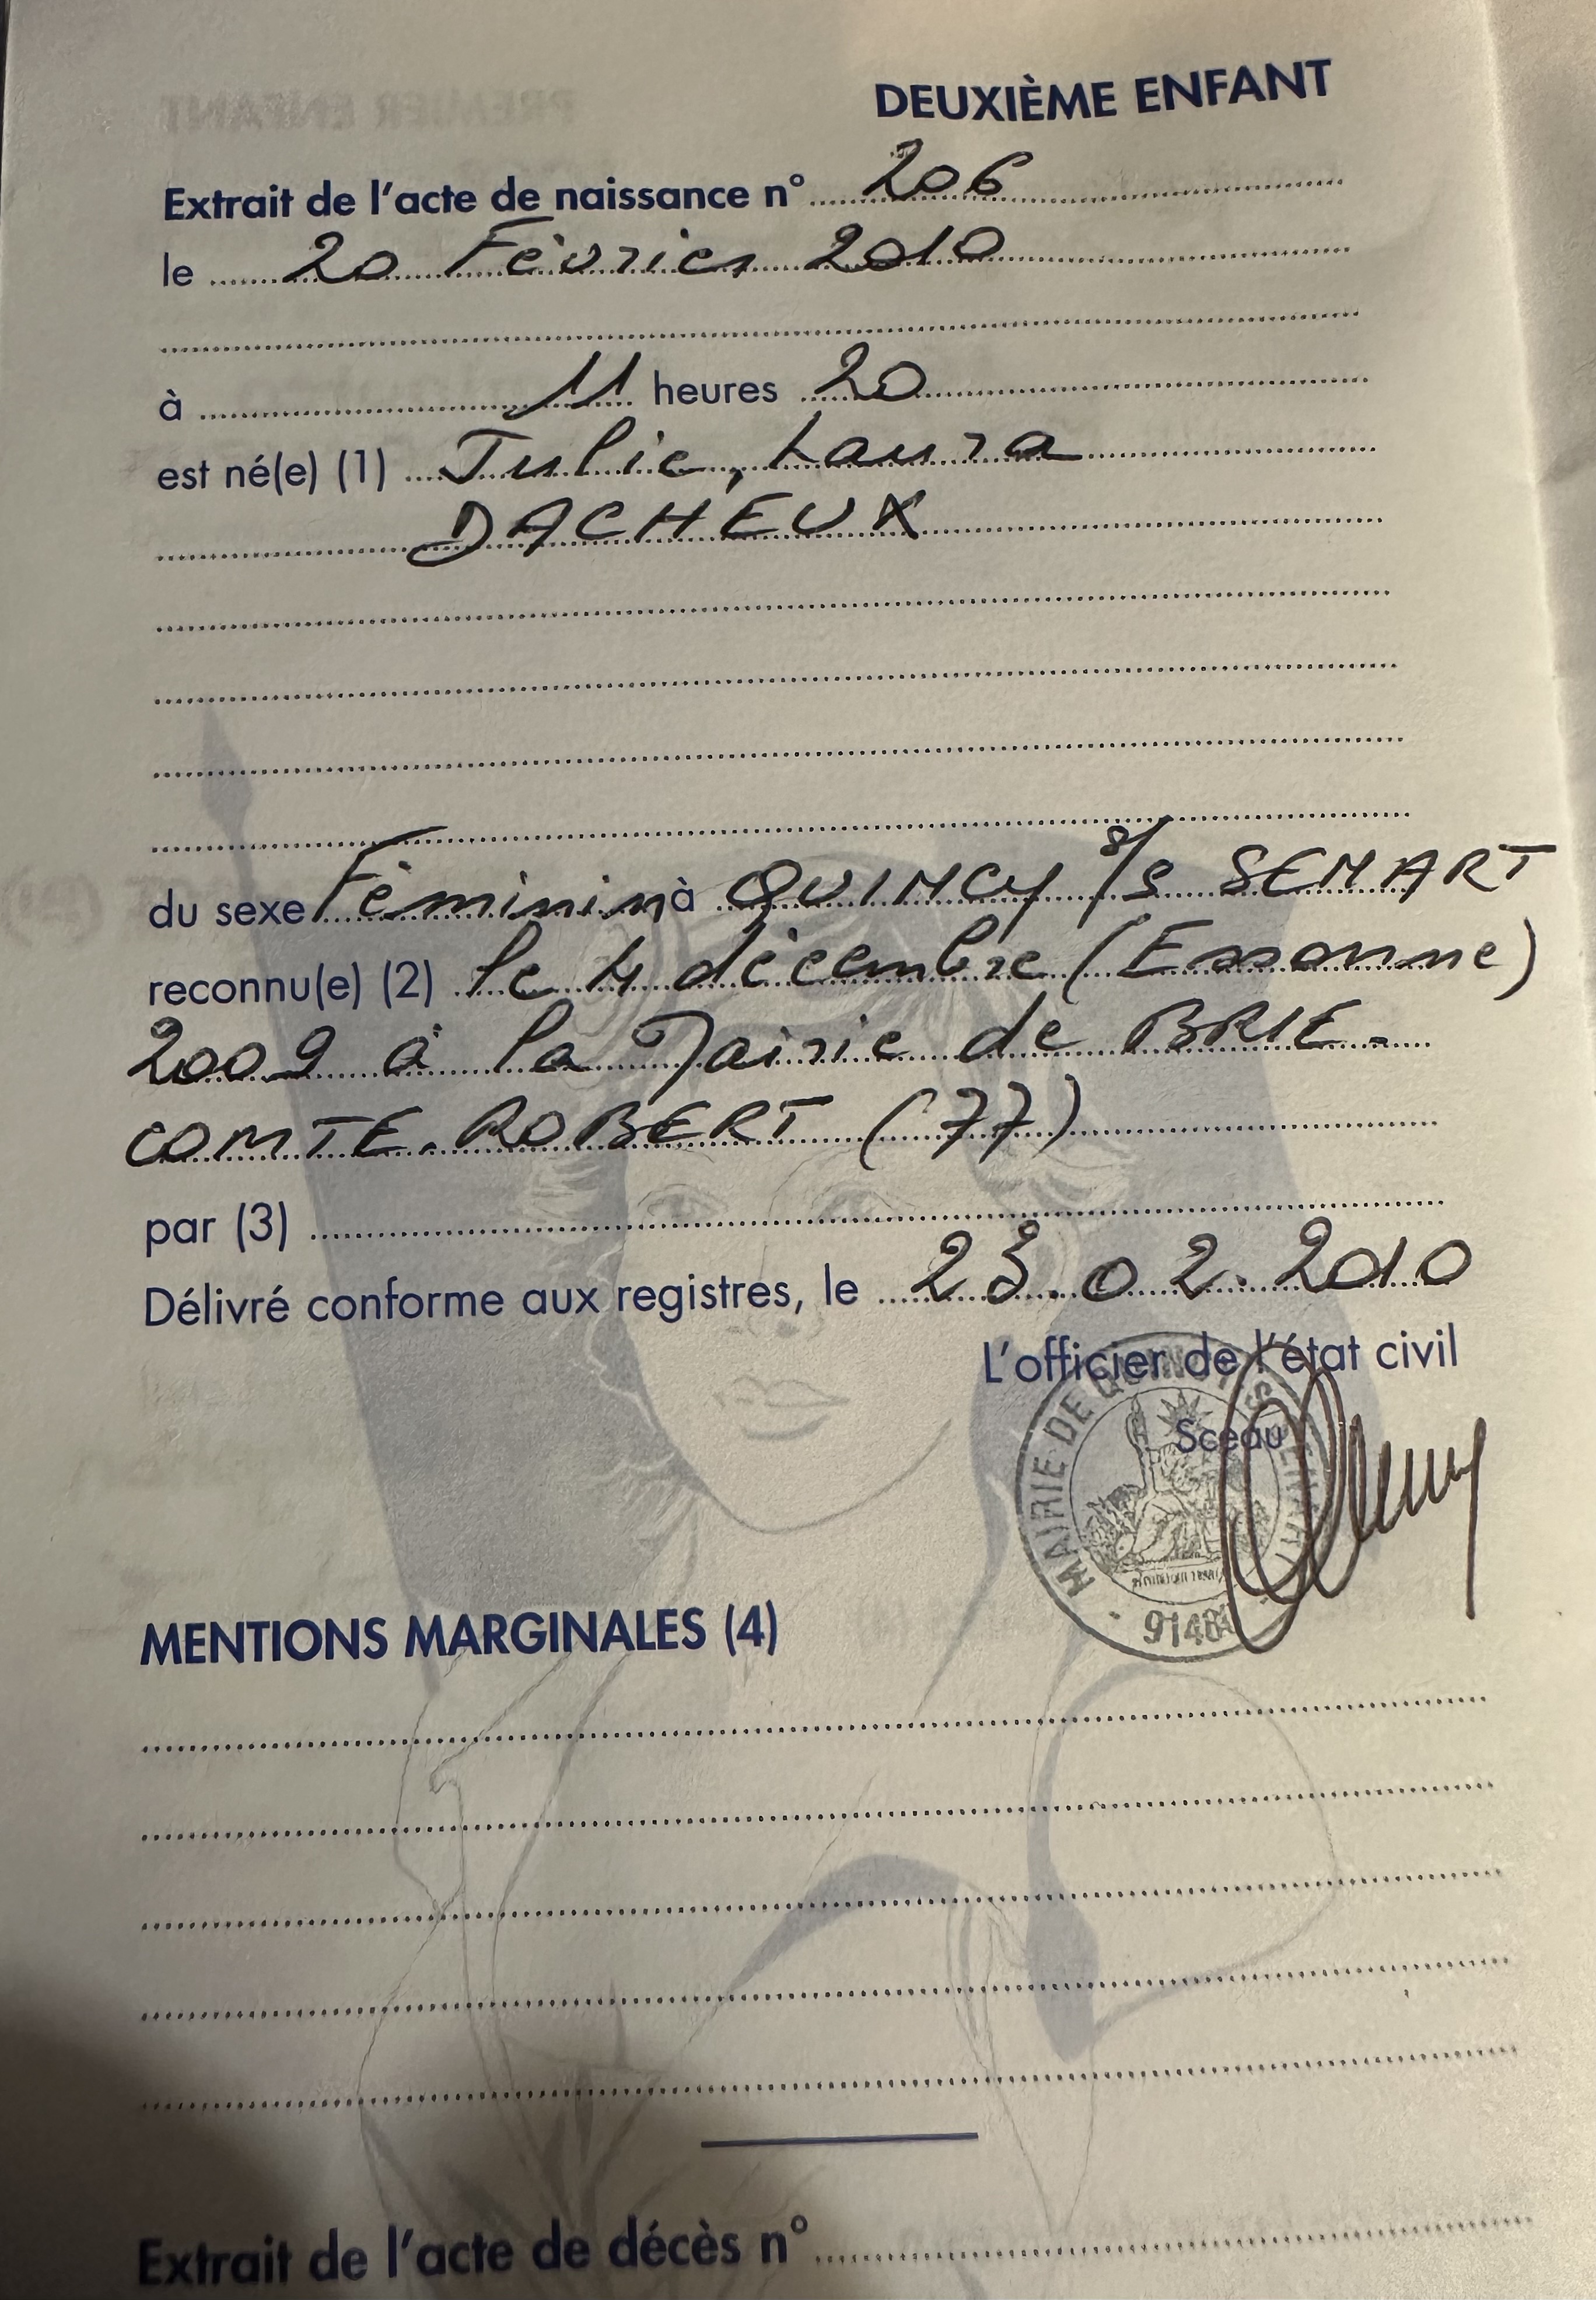 DEUXIÈME ENFANT
Extrait de l'acte de naissance n° 206
le 20 Février 2010
à 11 heures 20
est né(e) (1) Julie, Laura
DACHEUX
du sexe Féminin à QUINCY s/s SENART
reconnu(e) (2) le 4 décembre (Essonne)
2009 à la Mairie de BRIE-
COMTE-ROBERT (77)
par (3)
Délivré conforme aux registres, le 23.02.2010
L'officier de l'état civil
Sceau
MAIRIE DE
MENTIONS MARGINALES (4)
Extrait de l'acte de décès n°